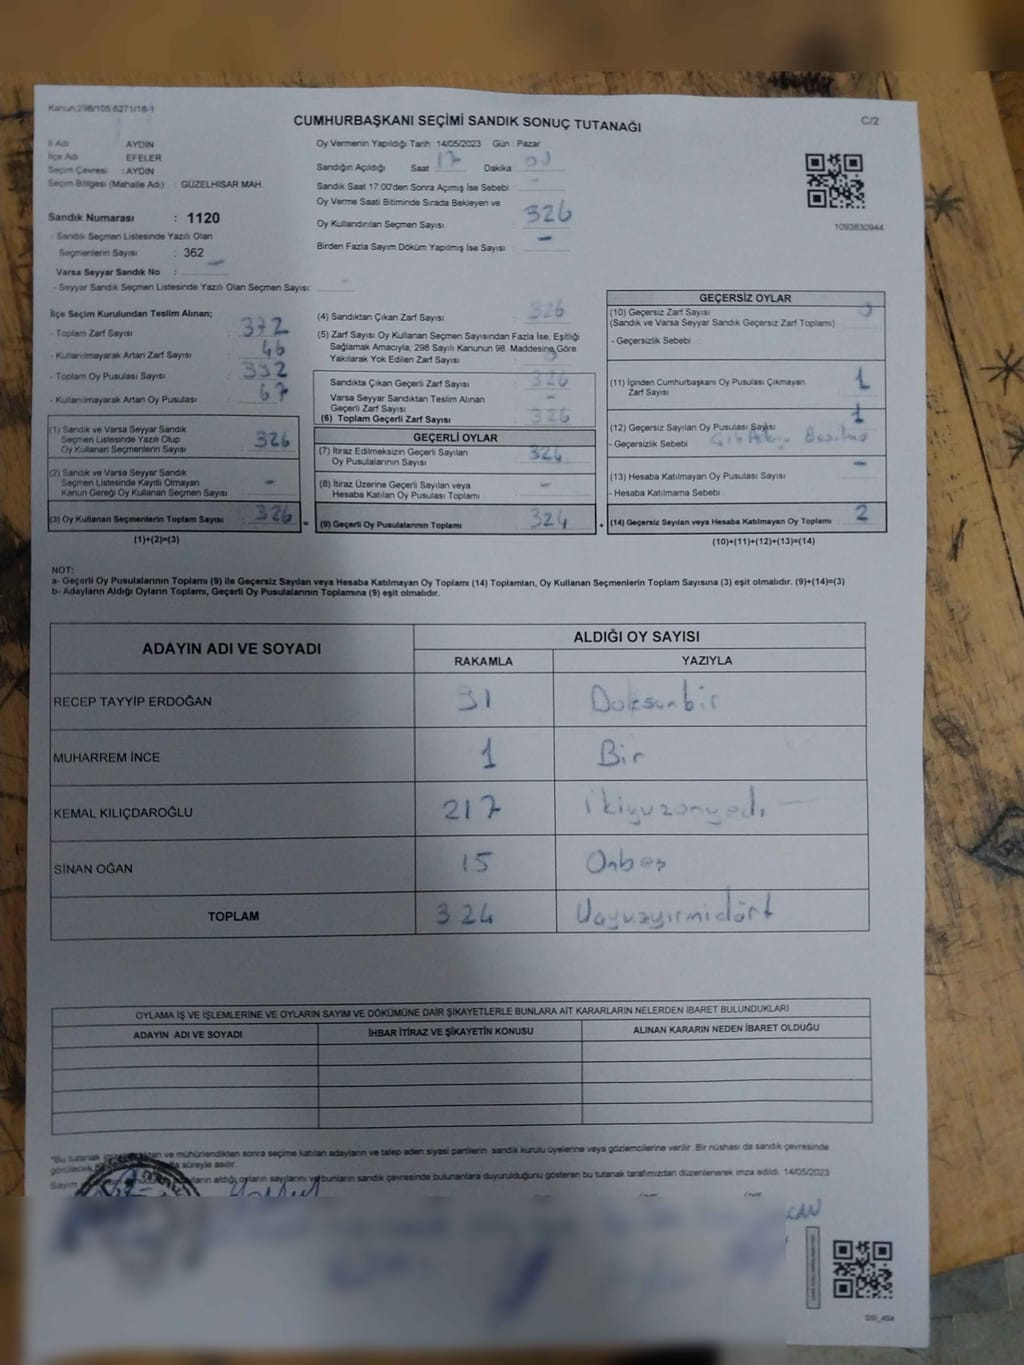 Kanun:298/105;6271/18-1
CUMHURBAŞKANI SEÇİMİ SANDIK SONUÇ TUTANAĞI
C/2
İl Adı AYDIN
İlçe Adı : EFELER
Seçim Çevresi : AYDIN
Seçim Bölgesi (Mahalle Adı) : GÜZELHİSAR MAH.
Sandık Numarası : 1120
- Sandık Seçmen Listesinde Yazılı Olan
Seçmenlerin Sayısı : 362
Varsa Seyyar Sandık No : -
- Seyyar Sandık Seçmen Listesinde Yazılı Olan Seçmen Sayısı: -
Oy Vermenin Yapıldığı Tarih 14/05/2023 Gün : Pazar
Sandığın Açıldığı Saat 17 Dakika
Sandık Saat 17:00'den Sonra Açımış İse Sebebi : -
Oy Verme Saati Bitiminde Sırada Bekleyen ve
Oy Kullandırılan Seçmen Sayısı : 326
Birden Fazla Sayım Döküm Yapılmış İse Sayısı : -
1093830944
İlçe Seçim Kurulundan Teslim Alınan;
- Toplam Zarf Sayısı : 372
- Kullanılmayarak Artan Zarf Sayısı : 46
- Toplam Oy Pusulası Sayısı : 392
- Kullanılmayarak Artan Oy Pusulası : 67
(1) Sandık ve Varsa Seyyar Sandık
Seçmen Listesinde Yazılı Olup
Oy Kullanan Seçmenlerin Sayısı : 326
(2) Sandık ve Varsa Seyyar Sandık
Seçmen Listesinde Kayıtlı Olmayan
Kanun Gereği Oy Kullanan Seçmen Sayısı : -
(3) Oy Kullanan Seçmenlerin Toplam Sayısı : 326
(1)+(2)=(3)
(4) Sandıktan Çıkan Zarf Sayısı : 326
(5) Zarf Sayısı Oy Kullanan Seçmen Sayısından Fazla İse, Eşitliği
Sağlamak Amacıyla; 298 Sayılı Kanunun 98. Maddesine Göre
Yakılarak Yok Edilen Zarf Sayısı :
Sandıkta Çıkan Geçerli Zarf Sayısı : 326
Varsa Seyyar Sandıktan Teslim Alınan
Geçerli Zarf Sayısı : -
(6) Toplam Geçerli Zarf Sayısı : 326
GEÇERLİ OYLAR
(7) İtiraz Edilmeksizin Geçerli Sayılan
Oy Pusulalarının Sayısı : 324
(8) İtiraz Üzerine Geçerli Sayılan veya
Hesaba Katılan Oy Pusulası Toplamı : -
= (9) Geçerli Oy Pusulalarının Toplamı : 324 +
GEÇERSİZ OYLAR
(10) Geçersiz Zarf Sayısı
(Sandık ve Varsa Seyyar Sandık Geçersiz Zarf Toplamı)
- Geçersizlik Sebebi :
(11) İçinden Cumhurbaşkanı Oy Pusulası Çıkmayan
Zarf Sayısı : 1
(12) Geçersiz Sayılan Oy Pusulası Sayısı : 1
- Geçersizlik Sebebi :
(13) Hesaba Katılmayan Oy Pusulası Sayısı : -
- Hesaba Katılmama Sebebi :
(14) Geçersiz Sayılan veya Hesaba Katılmayan Oy Toplamı : 2
(10)+(11)+(12)+(13)=(14)
NOT:
a- Geçerli Oy Pusulalarının Toplamı (9) ile Geçersiz Sayılan veya Hesaba Katılmayan Oy Toplamı (14) Toplamları, Oy Kullanan Seçmenlerin Toplam Sayısına (3) eşit olmalıdır. (9)+(14)=(3)
b- Adayların Aldığı Oyların Toplamı, Geçerli Oy Pusulalarının Toplamına (9) eşit olmalıdır.
ADAYIN ADI VE SOYADI ALDIĞI OY SAYISI
RAKAMLA YAZIYLA
RECEP TAYYİP ERDOĞAN 91 Doksanbir
MUHARREM İNCE 1 Bir
KEMAL KILIÇDAROĞLU 217 İkiyuzonyedi
SİNAN OĞAN 15 Onbeş
TOPLAM 324 Üçyuzyirmidört
OYLAMA İŞ VE İŞLEMLERİNE VE OYLARIN SAYIM VE DÖKÜMÜNE DAİR ŞİKAYETLERLE BUNLARA AİT KARARLARIN NELERDEN İBARET BULUNDUKLARI
ADAYIN ADI VE SOYADI İHBAR İTİRAZ VE ŞİKAYETİN KONUSU ALINAN KARARIN NEDEN İBARET OLDUĞU
*Bu tutanak ve mühürlendikten sonra seçime katılan adayların ve talep eden siyasi partilerin sandık kurulu üyelerine veya gözlemcilerine verilir. Bir nüshası da sandık çevresinde
görülecek süreyle asılır.
Sayım aldığı oyların sayılarını ve bunların sandık çevresinde bulunanlara duyurulduğunu gösteren bu tutanak tarafımızdan düzenlenerek imza edildi. 14/05/2023